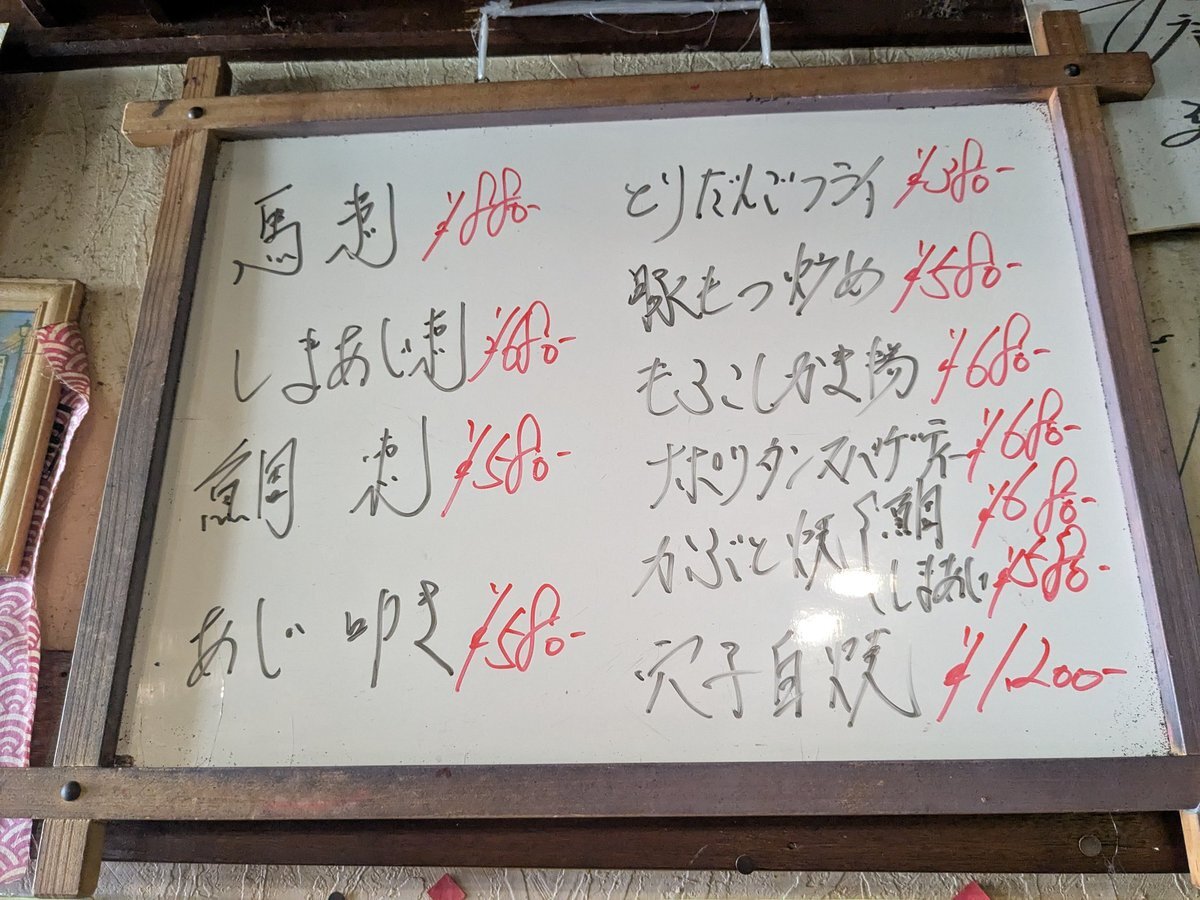 馬刺 ¥880-
しまあじ刺 ¥680-
鯛刺 ¥580-
あじ叩き ¥580-
とりだんごフライ ¥380-
豚もつ炒め ¥580-
もろこしかき揚 ¥680-
ナポリタンスパゲティー ¥680-
かぶと焼 鯛 ¥680-
しまあじ ¥580-
穴子白焼 ¥1,200-